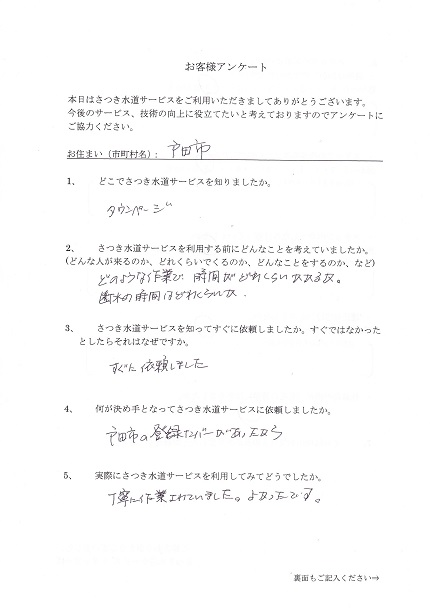 お客様アンケート
本日はさつき水道サービスをご利用いただきましてありがとうございます。
今後のサービス、技術の向上に役立てたいと考えておりますのでアンケートに
ご協力ください。
お住まい（市町村名）： 戸田市
1、 どこでさつき水道サービスを知りましたか。
タウンページ
2、 さつき水道サービスを利用する前にどんなことを考えていましたか。
（どんな人が来るのか、どれくらいでくるのか、どんなことをするのか、など）
どのような作業で 時間がどれくらいかかるか。
断水の時間はどれくらいか.
3、 さつき水道サービスを知ってすぐに依頼しましたか。すぐではなかった
としたらそれはなぜですか。
すぐに依頼しました
4、 何が決め手となってさつき水道サービスに依頼しましたか。
戸田市の登録ナンバーがあったから
5、 実際にさつき水道サービスを利用してみてどうでしたか。
丁寧に作業されていました。よかったです。
裏面もご記入ください→